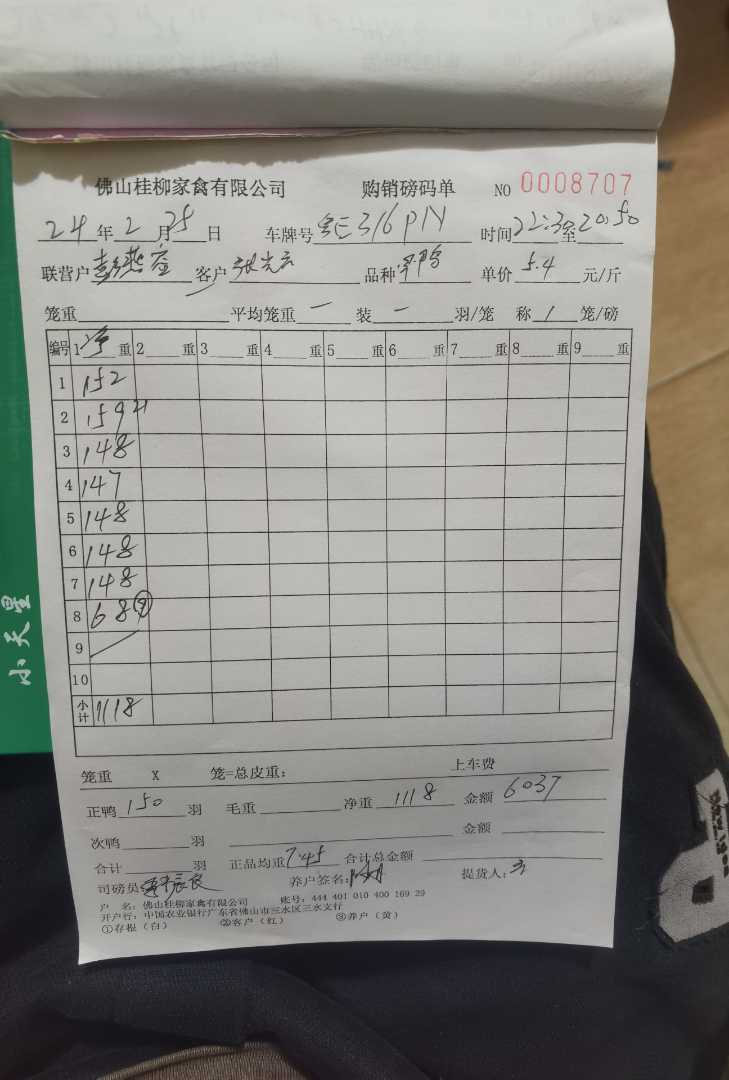 佛山桂柳家禽有限公司 购销磅码单 NO 0008707
24年2月25日 车牌号 316P1Y 时间22:3 至20:50
联营户彭燕 客户张 品种 单价5.4元/斤
笼重 平均笼重 一 装 一 羽/笼 称 1 笼/磅
编号 1净重 2 重 3 重 4 重 5 重 6 重 7 重 8 重 9 重
1 152
2 159 21
3 148
4 147
5 148
6 148
7 148
8 68 ⑨
9
10
小计 1118
笼重 X 笼=总皮重: 上车费
正鸭 150 羽 毛重 净重 1118 金额 6037
次鸭 羽 金额
合计 羽 正品均重 7.45 合计总金额
司磅员 养户签名: 提货人:
户 名: 佛山桂柳家禽有限公司 账号: 444 401 010 400 169 29
开户行: 中国农业银行广东省佛山市三水区三水支行
①存根(白) ②客户(红) ③养户(黄)
小天星